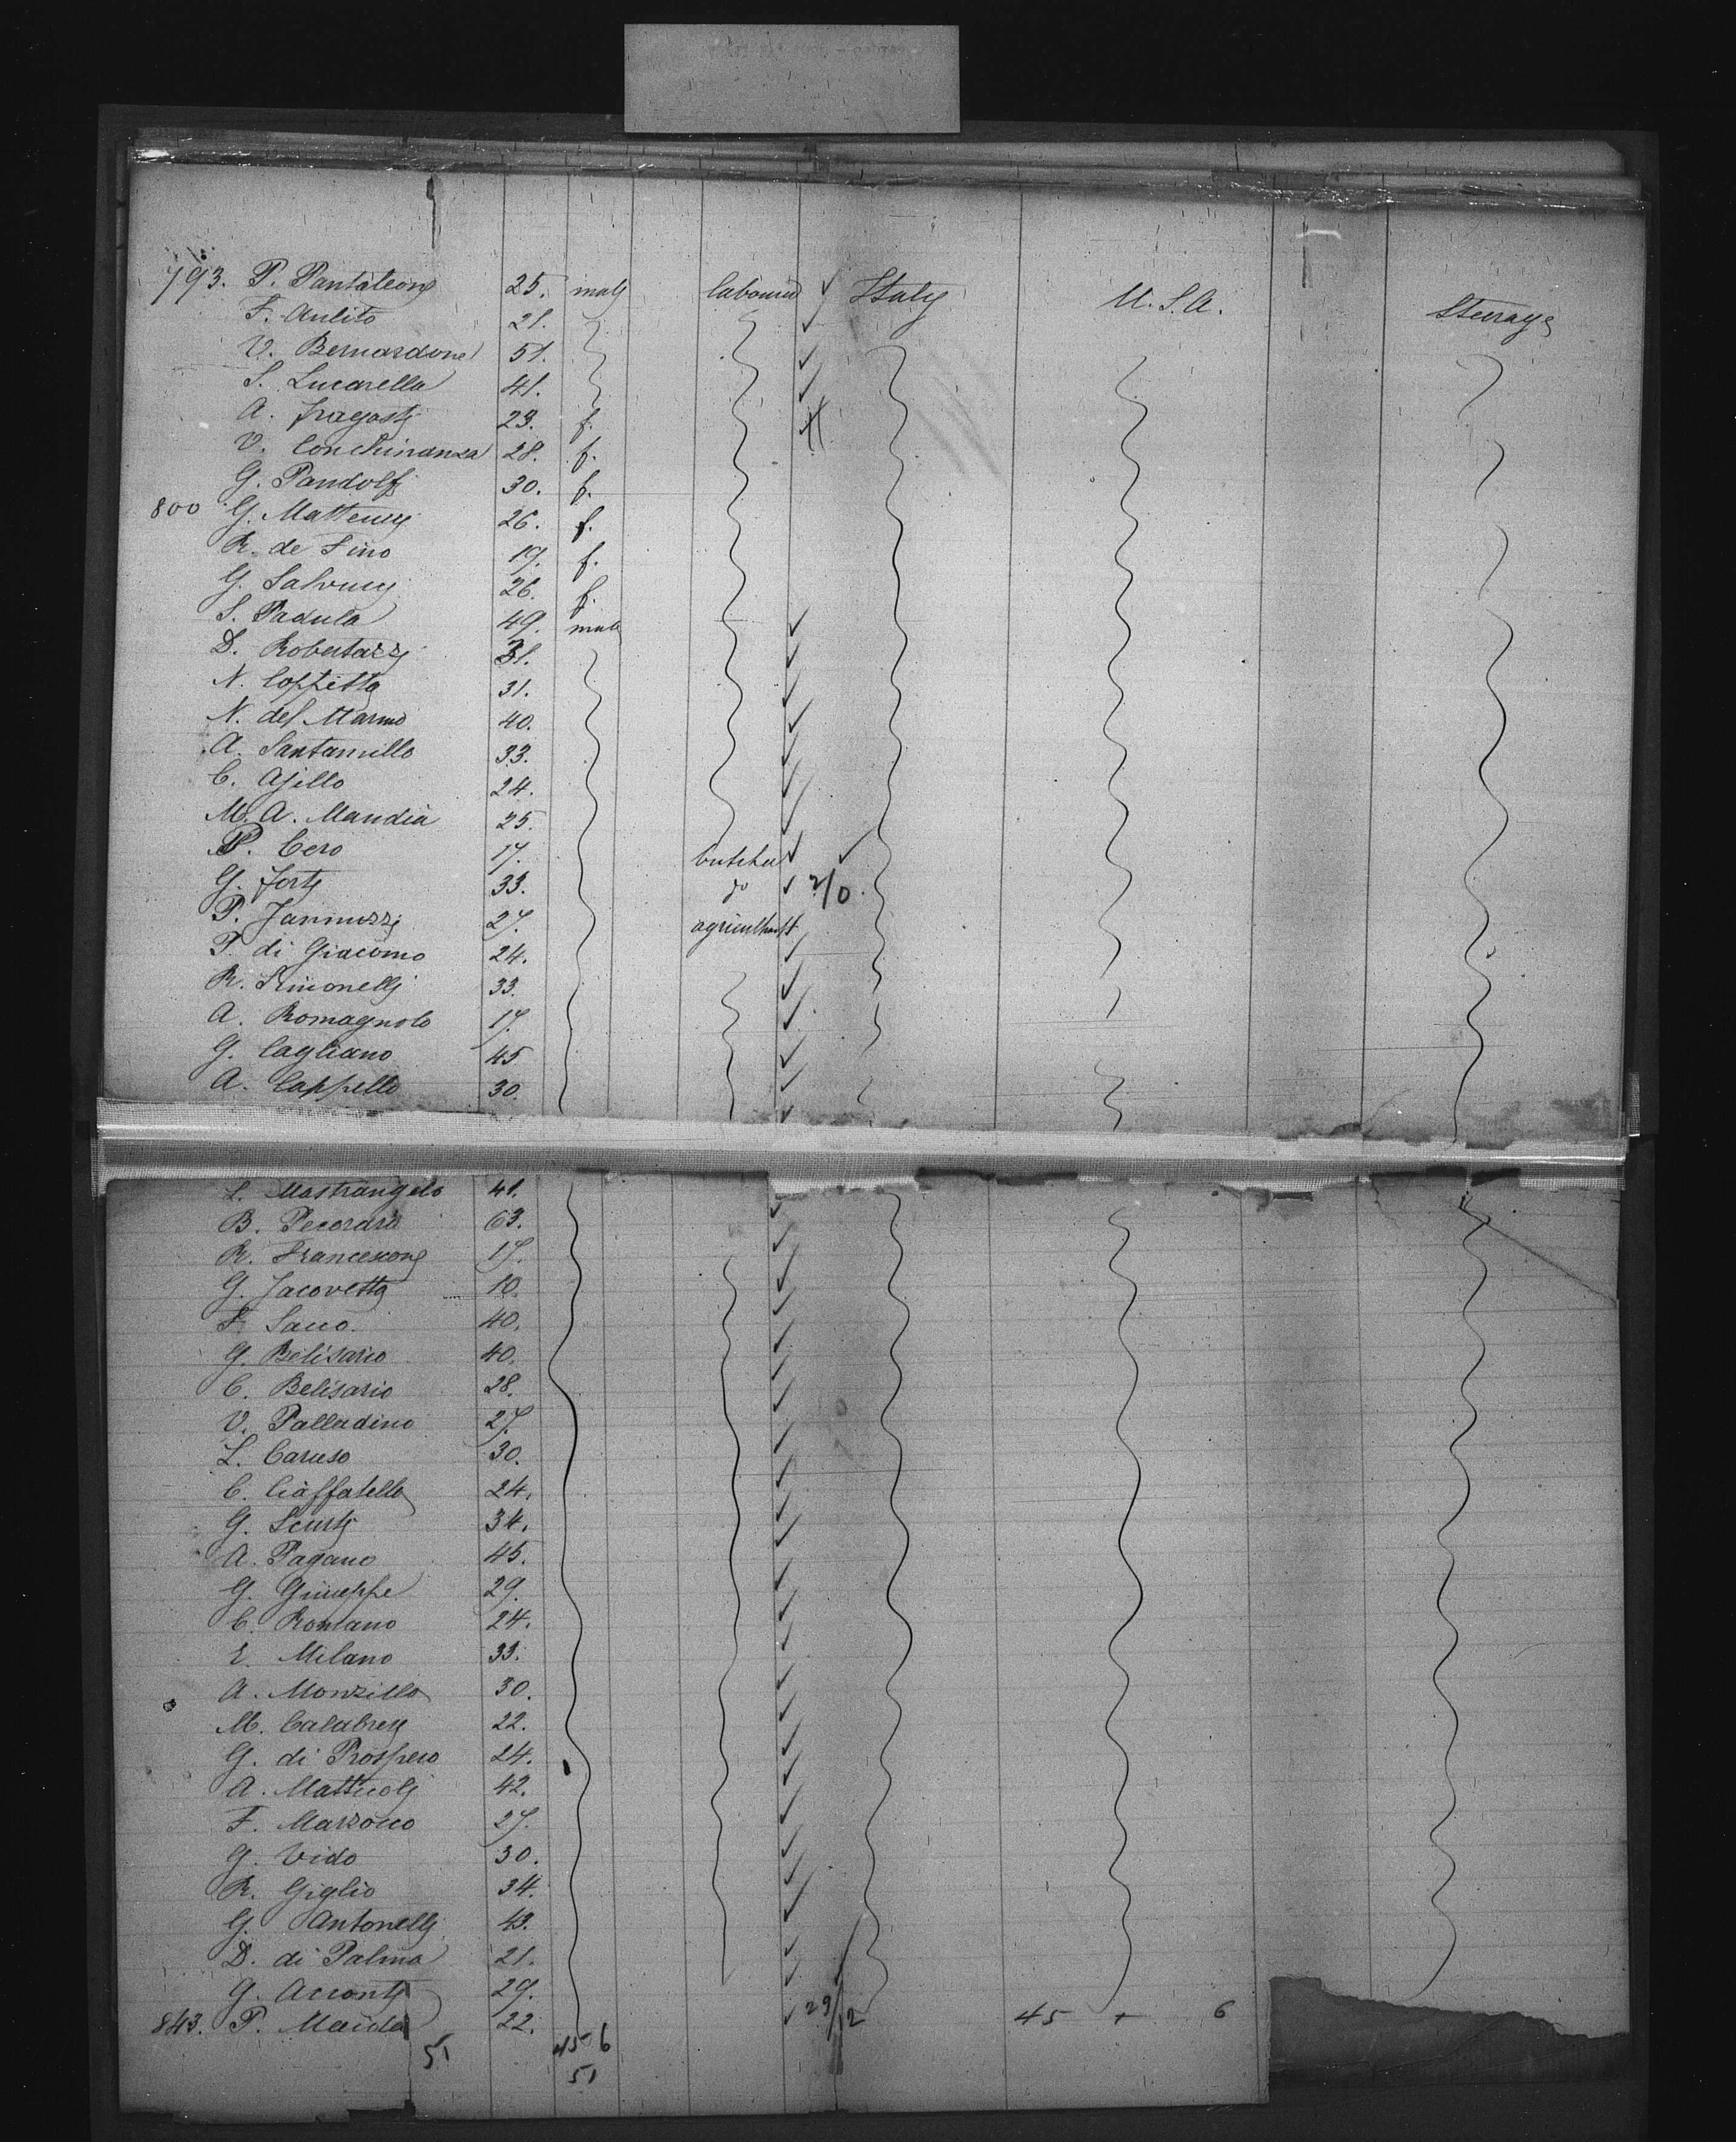 793. P. Pantaleone 25. male labourer Italy U.S.A. Steerage
F. Aulito 21.
V. Bernardone 51.
S. Lucarella 41.
A. Fragosti 23. f.
V. Conchinanza 28. f.
G. Pandolfi 30. f.
800 G. Matteucci 26. f.
R. de Fino 19. f.
G. Salvucci 26. f.
S. Padula 49. male
D. Robertazzi 31.
N. Coppetta 31.
N. del Marmo 40.
A. Santamillo 33.
C. Ajello 24.
M. A. Mandia 25.
P. Cero 17. butcher
G. Forte 33. do 2/0.
P. Jannuzzi 27. agriculturist
P. di Giacomo 24.
R. Simonelli 33.
A. Romagnolo 17.
G. Cagliano 45
A. Cappello 30.
L. Mastrangelo 41.
B. Pecoraro 63.
R. Francescone 17.
G. Jacovetta 10.
F. Sacco. 40.
G. Belisario 40.
C. Belisario 28.
V. Palladino 27.
L. Caruso 30.
C. Ciaffatello 24.
G. Scurti 34.
A. Pagano 45.
G. Giuseppe 29.
C. Romano 24.
E. Milano 33.
A. Monzillo 30.
M. Calabrese 22.
G. di Prospero 24.
A. Matticoli 42.
F. Marzocco 27.
G. Vido 30.
R. Giglio 34.
G. Antonelli 43.
D. di Palma 21.
G. Acconti 29.
843. P. Maida 22. 29/12 45 + 6
51 45 6
51